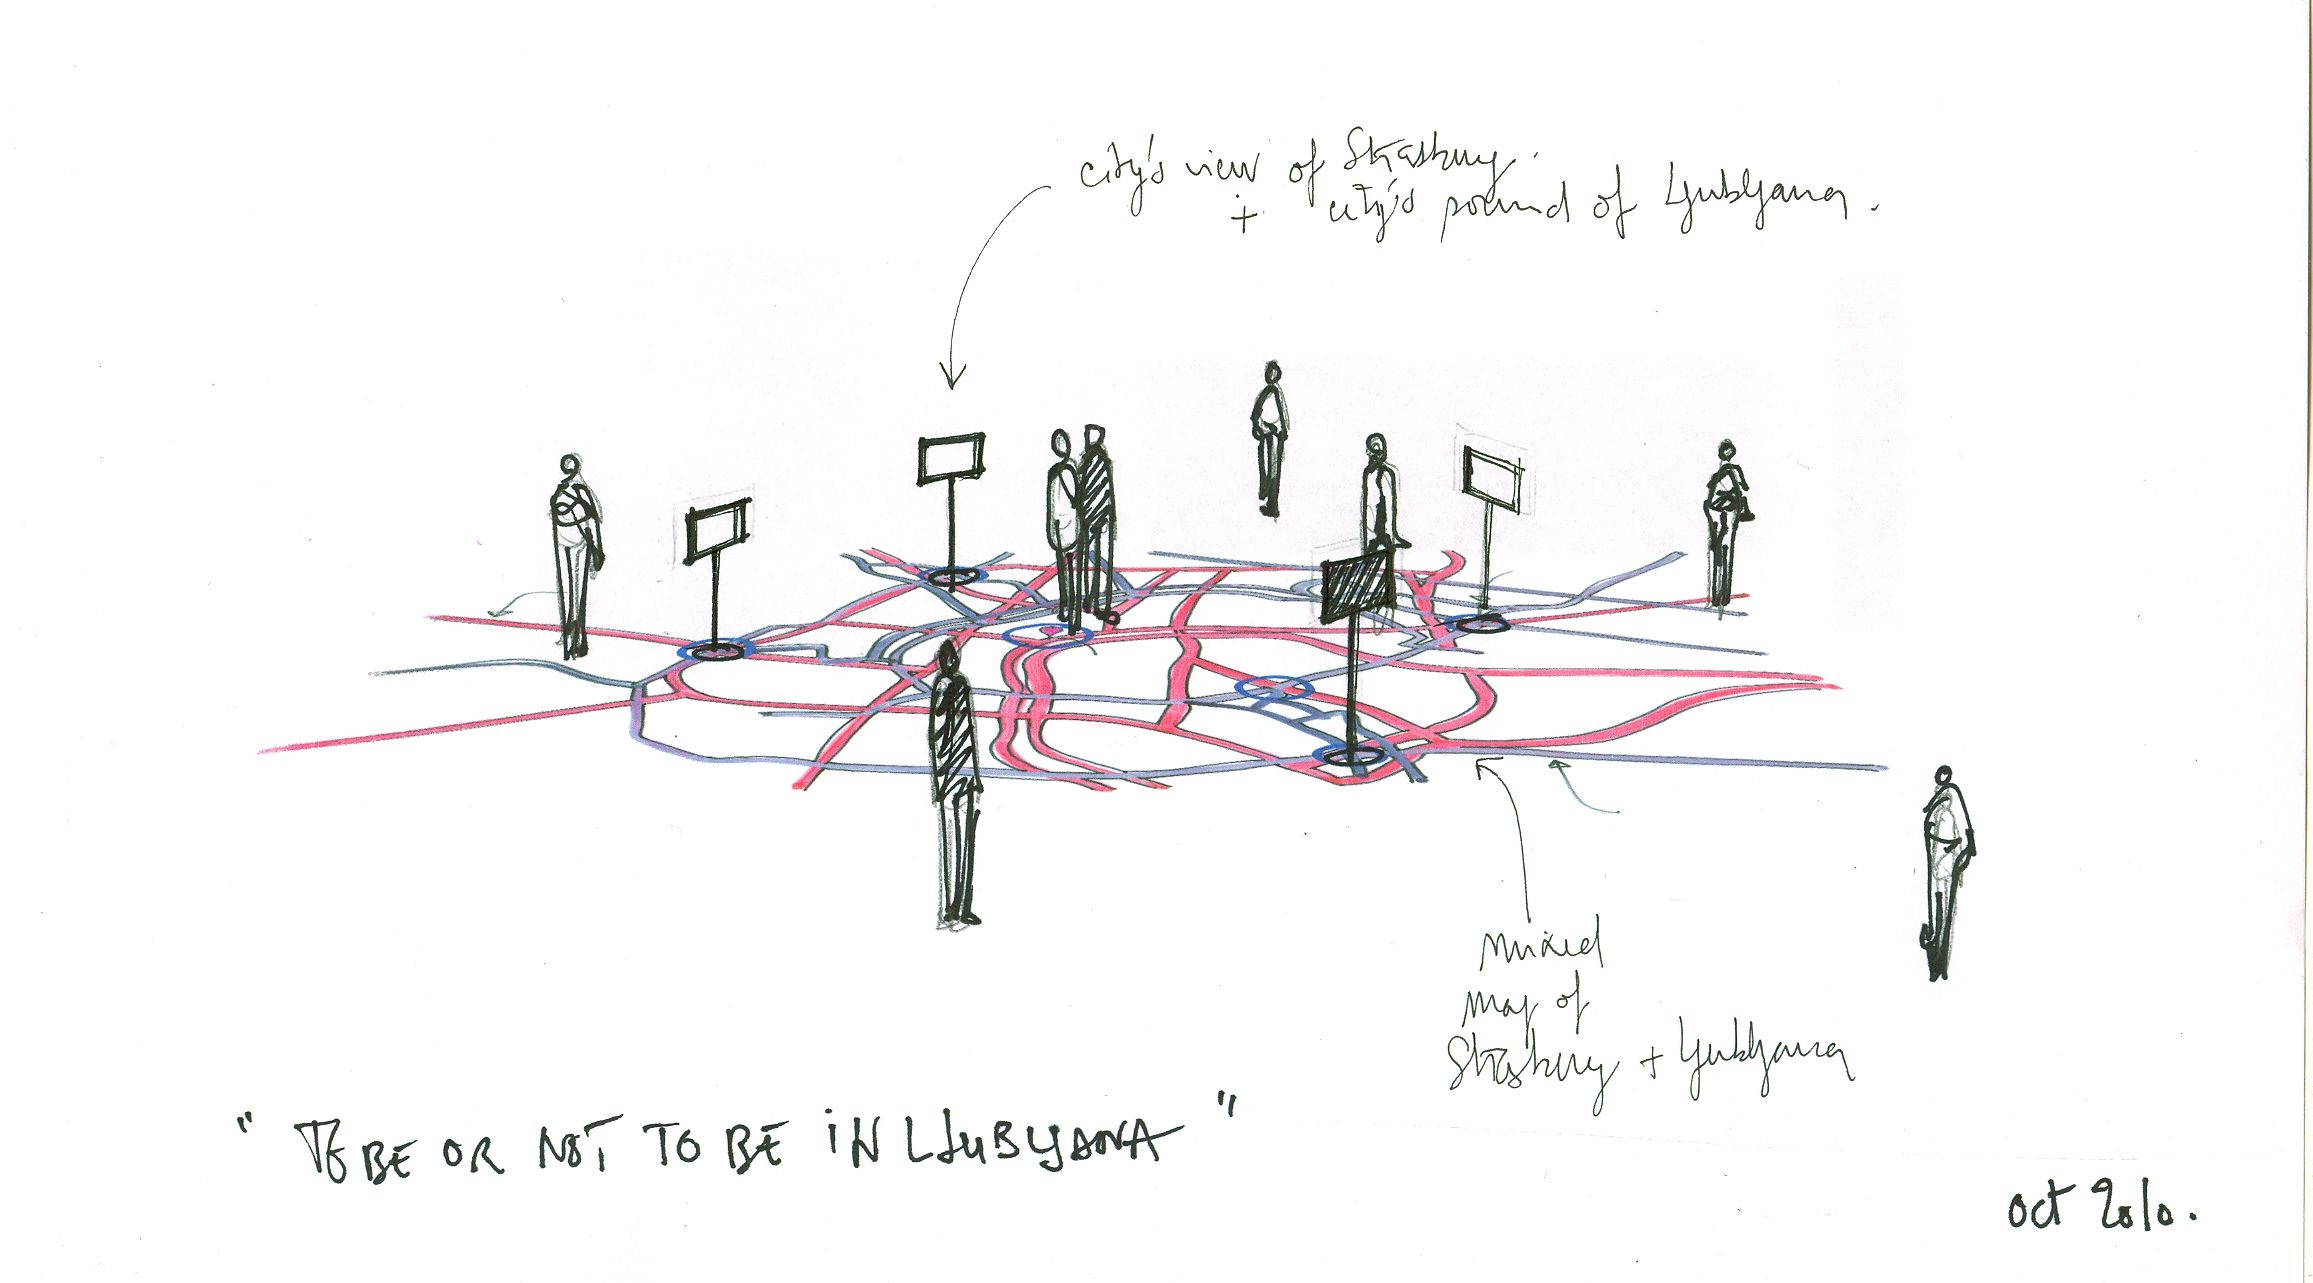 city's view of Strasburg.
+ city's pound of Ljubljana.
mixed
map of
Strasburg + Ljubljana
" TO BE OR NOT TO BE iN LJUBLJANA "
oct 2010.